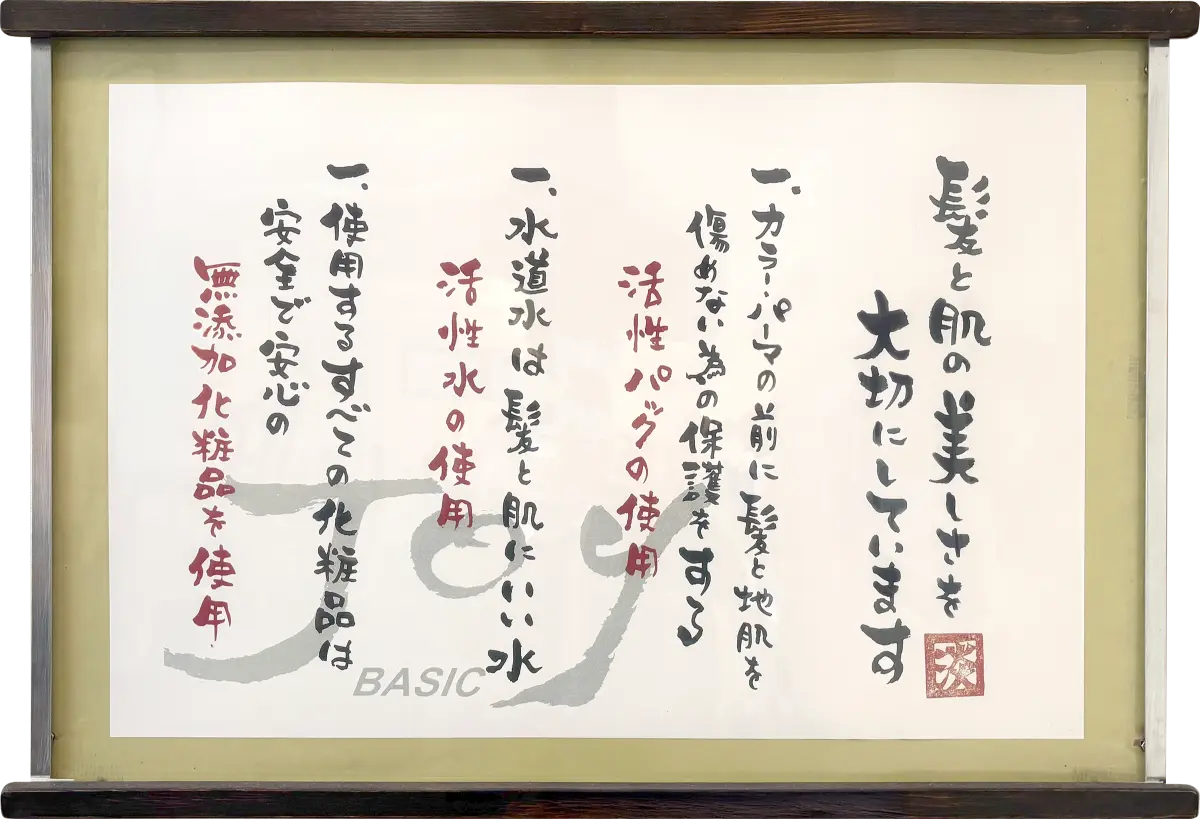 髪と肌の美しさを
大切にしています
一、カラー・パーマの前に髪と地肌を
傷めない為の保護をする
活性パックの使用
一、水道水は髪と肌にいい水
活性水の使用
一、使用するすべての化粧品は
安全で安心の
無添加化粧品を使用
Joy
BASIC